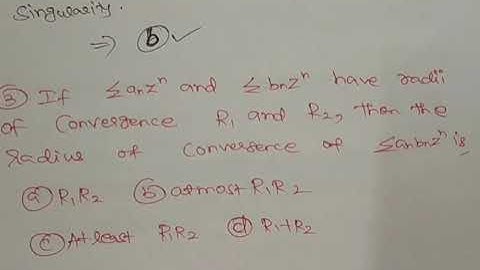 Singularity.
⇒ ⓑ ✓
③ If ≤anzⁿ and ≤bnzⁿ have radii
of Convergence R₁ and R₂, then the
radius of convergence of ≤anbnzⁿ is
ⓐ R₁R₂ ⓑ atmost R₁R₂
ⓒ At least R₁R₂ ⓓ R₁+R₂